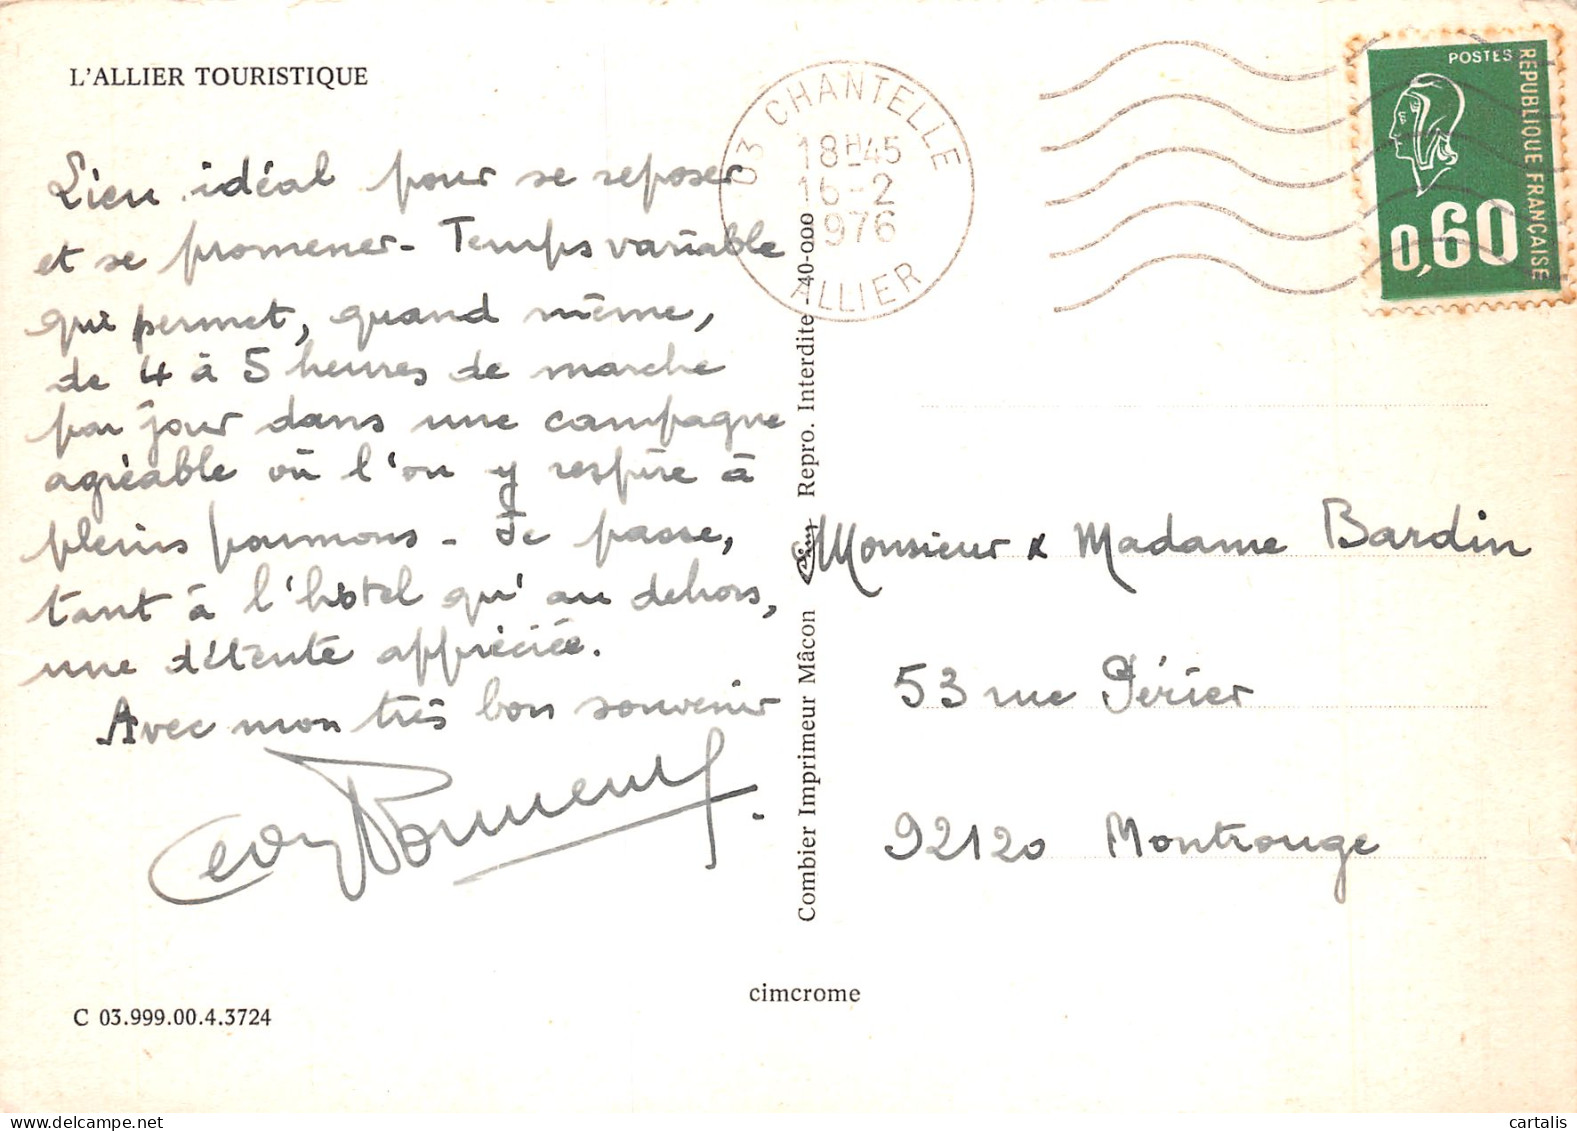 L'ALLIER TOURISTIQUE
Lieu idéal pour se reposer
et se promener - Temps variable
qui permet, quand même,
de 4 à 5 heures de marche
par jour dans une campagne
agréable où l'on y respire à
pleins poumons - Je passe,
tant à l'hôtel qu'au dehors,
une détente appréciée.
Avec mon très bon souvenir
C 03.999.00.4.3724
cimcrome
Combier Imprimeur Mâcon Cim Repro. Interdite - 40-000
03 CHANTELLE
18H45
16-2
1976
ALLIER
POSTES
REPUBLIQUE FRANÇAISE
0,60
Monsieur & Madame Bardin
53 rue Périer
92120 Montrouge
cartalis